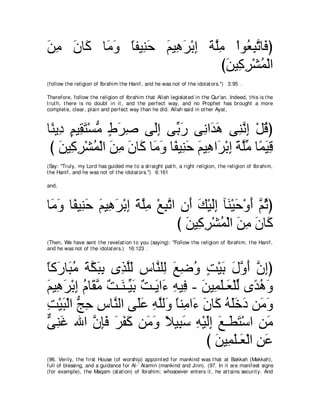 فَاتَّبِعُواْ مِلَّةَ إِبْرَهِيمَ حَنِيفًا وَمَا كَانَ مِنَ
الْمُشْرِكِينَ)
(follow the religion of Ibrahim the Hanif, and he was not of the idolators.") 3:95 .
Therefore, follow the religion of Ibrahim that Allah legislated in the Qur'an. Indeed, this is the
truth, there is no doubt in it, and the perfect way, and no Prophet has brought a more
complete, clear, plain and perfect way than he did. Allah said in other Ayat,
(قُلْ إِنَّنِى هَدَانِى رَبِّى إِلَى صِرَطٍ مُّسْتَقِيمٍ دِينًا
قِيَمًا مِّلَّةَ إِبْرَاهِيمَ حَنِيفًا وَمَا كَانَ مِنَ الْمُشْرِكِينَ )
(Say: "Truly, my Lord has guided me to a straight path, a right religion, the religion of Ibrahim,
the Hanif, and he was not of the idolators.") 6:161
and,
(ثُمَّ أَوْحَيْنَآ إِلَيْكَ أَنِ اتَّبِعْ مِلَّةَ إِبْرَهِيمَ حَنِيفًا وَمَا
كَانَ مِنَ الْمُشْرِكِينَ )
(Then, We have sent the revelation to you (saying): "Follow the religion of Ibrahim, the Hanif,
and he was not of the idolators.) 16:123 .
(إِنَّ أَوَّلَ بَيْتٍ وُضِعَ لِلنَّاسِ لَلَّذِى بِبَكَّةَ مُبَارَكاً
وَهُدًى لِّلْعَـلَمِينَ - فِيهِ ءَايَـتٌ بَيِّـنَـتٌ مَّقَامُ إِبْرَهِيمَ
وَمَن دَخَلَهُ كَانَ ءَامِناً وَللَّهِ عَلَى النَّاسِ حِجُّ الْبَيْتِ
مَنِ اسْتَطَـعَ إِلَيْهِ سَبِيلاً وَمَن كَفَرَ فَإِنَّ الله غَنِىٌّ
عَنِ الْعَـلَمِينَ )
(96. Verily, the first House (of worship) appointed for mankind was that at Bakkah (Makkah),
full of blessing, and a guidance for Al-`Alamin (mankind and Jinn). (97. In it are manifest signs
(for example), the Maqam (station) of Ibrahim; whosoever enters it, he attains security. And